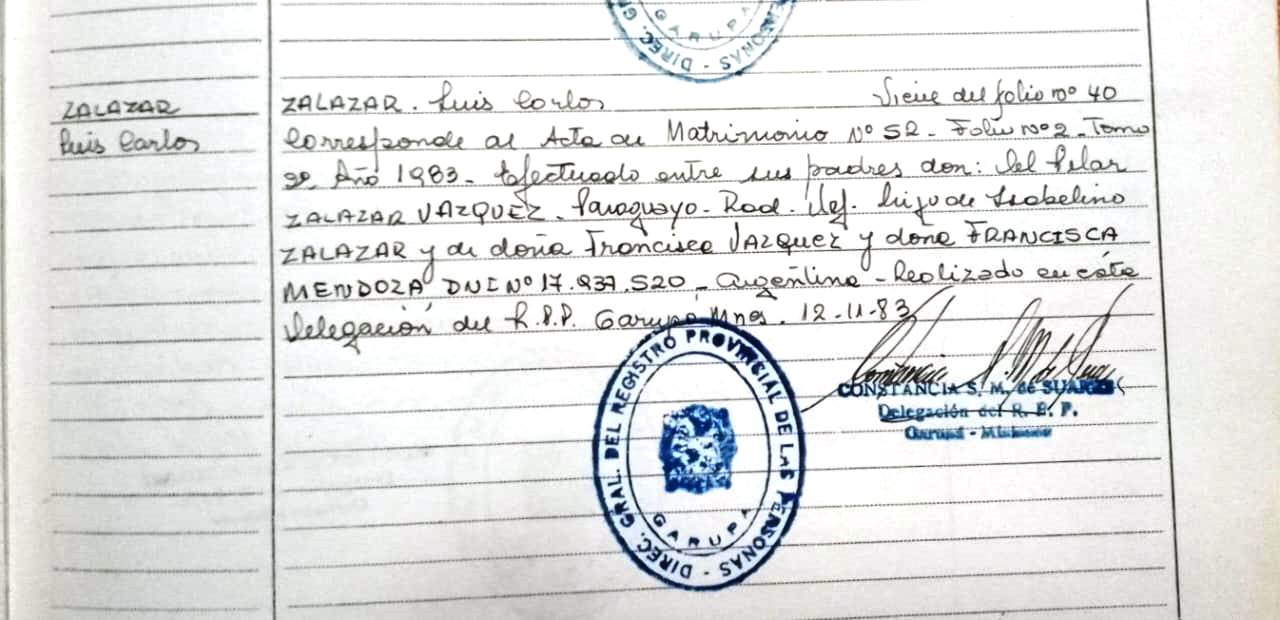 DIREC. GRAL. PERSONAS
GARUPA
ZALAZAR
Luis Carlos
ZALAZAR. Luis Carlos Viene del folio nº 40
Corresponde al Acta de Matrimonio Nº 52 - Folio Nº 2 - Tomo
2º Año 1983 - Efectuado entre sus padres don: Del Pilar
ZALAZAR VAZQUEZ - Paraguayo - Rad. Def. hijo de Isabelino
ZALAZAR y de doña Francisca VAZQUEZ y doña FRANCISCA
MENDOZA DNI Nº 17.937.520 - Argentina - Realizado en ésta
Delegación del R.P.P. Garupa Mnes. 12-11-83
DIREC. GRAL. DEL REGISTRO PROVINCIAL DE LAS PERSONAS
GARUPA
CONSTANCIA S. M. de SUAREZ
Delegación del R. P. P.
Garupá - Misiones